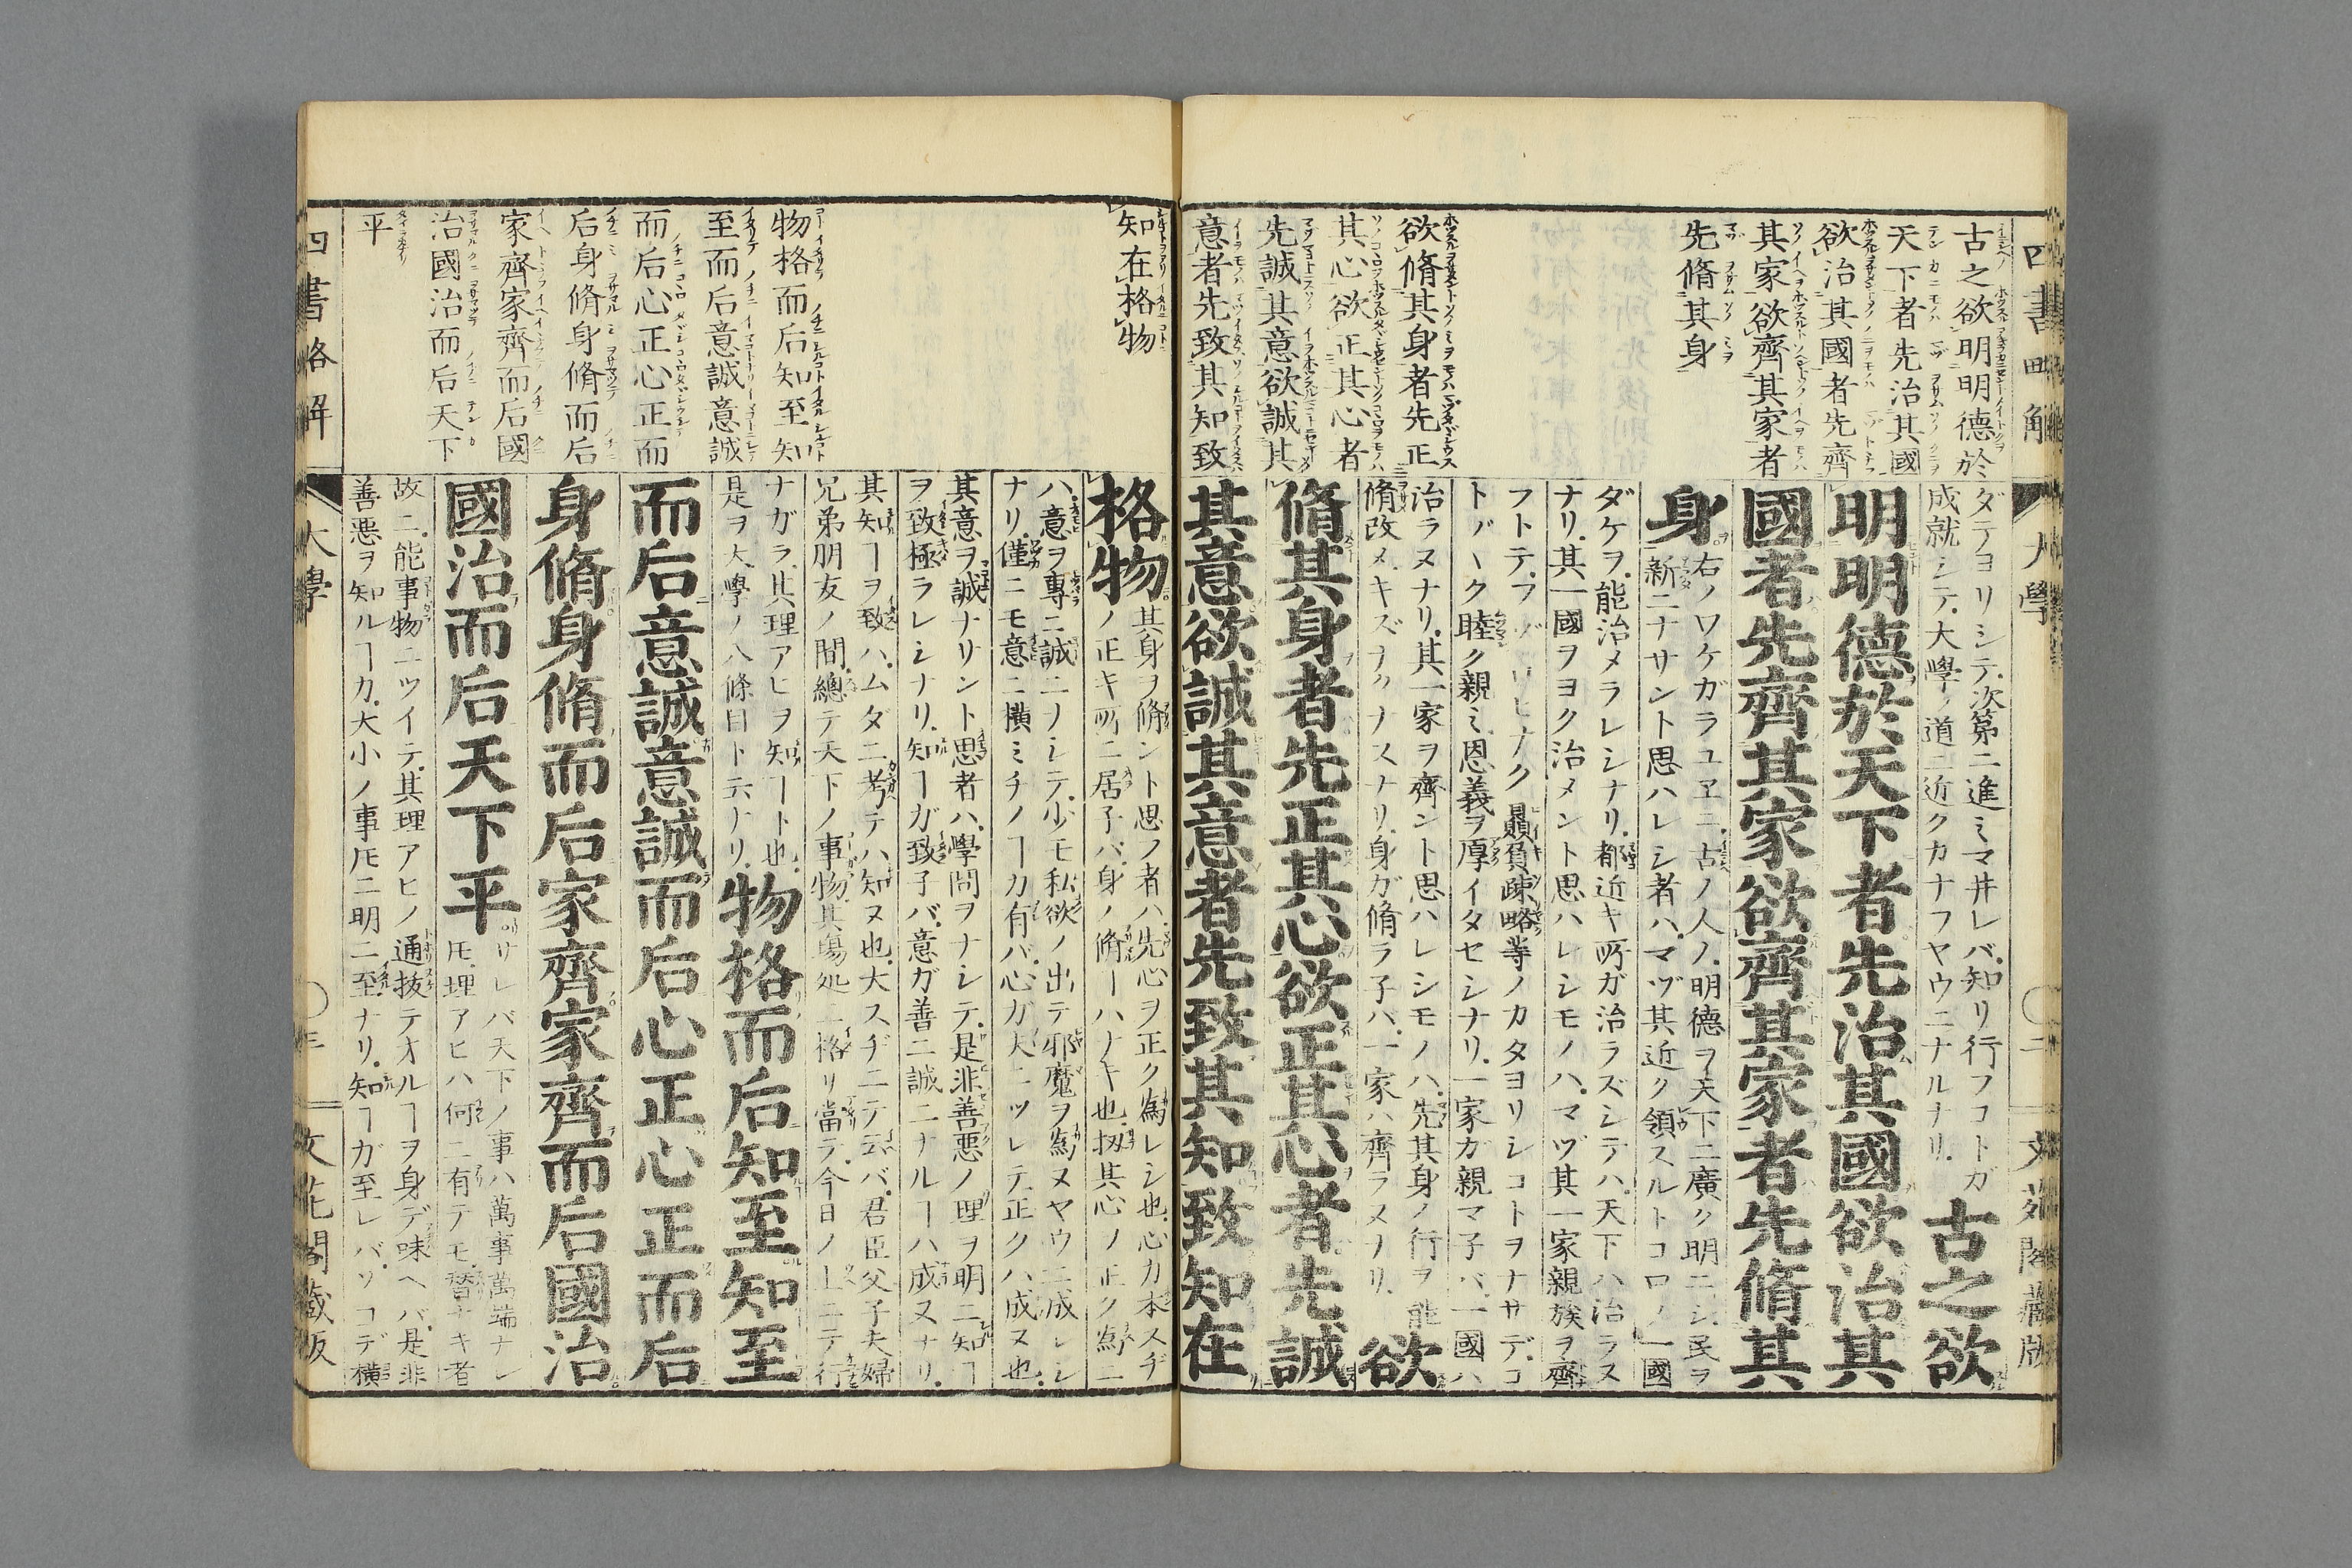 四書略解
大學
〇二
文花閣藏版
古之欲明明德於
天下者先治其國
欲治其國者先齊
其家欲齊其家者
先脩其身
欲脩其身者先正
其心欲正其心者
先誠其意欲誠其
意者先致其知致
ダテヨリシテ次第ニ進ミマ井レバ知リ行フコトガ
成就シテ大學ノ道ニ近クカナフヤウニナルナリ
古之欲
明明德於天下者先治其國欲治其
國者先齊其家欲齊其家者先脩其
身
右ノワケガラユヱニ古ノ人ノ明德ヲ天下ニ廣ク明ニシ民ヲ
新ニナサント思ハレシ者ハマヅ其近ク領スルトコロノ一國
ダケヲ能治メラレシナリ都近キ所ガ治ラズシテハ天下ハ治ラヌ
ナリ其一國ヲヨク治メント思ハレシモノハマヅ其一家親族ヲ齊
フトテ ナク贔負疎略等ノカタヨリシコトヲナサデコ
トバヽク睦ク親ミ恩義ヲ厚イタセシナリ一家ガ親マ子バ一國ハ
治ラヌナリ其一家ヲ齊ント思ハレシモノハ先其身ノ行ヲ能
脩改メキズナクナスナリ身ガ脩ラ子バ一家ハ齊ラヌナリ
欲
脩其身者先正其心欲正其心者先誠
其意欲誠其意者先致其知致知在
知在格物
物格而后知至知
至而后意誠意誠
而后心正心正而
后身脩身脩而后
家齊家齊而后國
治國治而后天下
平
格物
其身ヲ脩ント思フ者ハ先心ヲ正ク為レシ也心ガ本スヂ
ノ正キ所ニ居子バ身ノ脩ヿハナキ也扨其心ノ正ク為ニ
ハ意ヲ專ニ誠ニノシテ少モ私欲ノ出テ邪魔ヲ為ヌヤウニ成レシ
ナリ僅ニモ意ニ橫ミチノヿガ有バ心ガ夫ニツレテ正クハ成ヌ也
其意ヲ誠ナリント思者ハ學問ヲナシテ是非善悪ノ理ヲ明ニ知ヿ
ヲ致極ラレシナリ知ヿガ致子バ意ガ善ニ誠ニナルヿハ成ヌナリ
其知ヿヲ致ハムダニ考テハ知ヌ也大スヂニテ云バ君臣父子夫婦
兄弟朋友ノ間總テ天下ノ事物其塲処ニ格リ當テ今日ノ上ニテ行
ナガラ其理アヒヲ知ヿト也
是ヲ大學ノ八條目ト云ナリ
物格而后知至知至
而后意誠意誠而后心正心正而后
身脩身脩而后家齊家齊而后國治
國治而后天下平
サレバ天下ノ事ハ萬事萬端ナレ
𪜈理アヒハ何ニ有テモ替ナキ者
故ニ能事物ニツイテ其理アヒノ通拔テオルヿヲ身デ味ヘバ是非
善悪ヲ知ルヿガ大小ノ事𪜈ニ明ニ至ナリ知ヿガ至レバソコデ橫
四書略解
大學
〇三
文花閣藏版